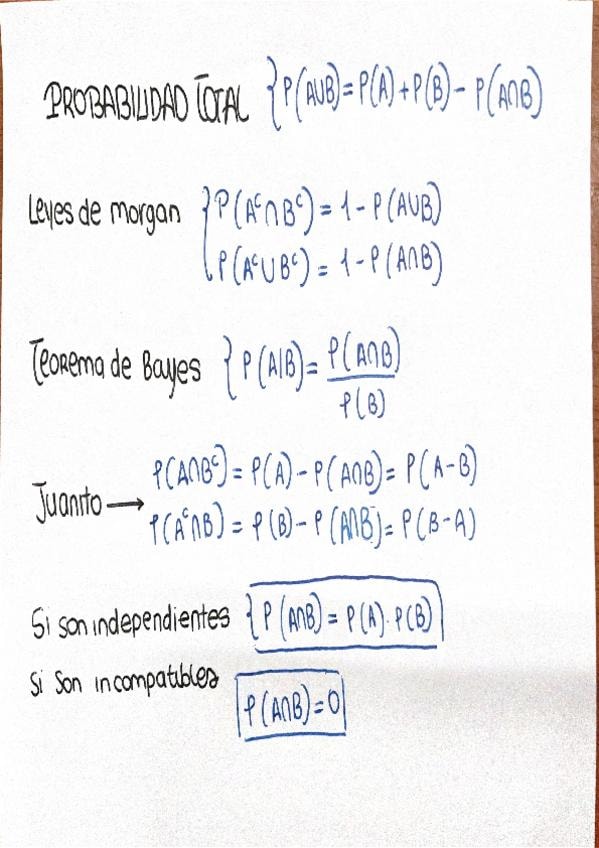 PROBABILIDAD TOTAL { P(A∪B) = P(A) + P(B) - P(A∩B)
Leyes de morgan { P(Aᶜ∩Bᶜ) = 1 - P(A∪B)
P(Aᶜ∪Bᶜ) = 1 - P(A∩B)
Teorema de Bayes { P(A|B) = P(A∩B)
P(B)
P(A∩Bᶜ) = P(A) - P(A∩B) = P(A-B)
Juanito →
P(Aᶜ∩B) = P(B) - P(A∩B) = P(B-A)
Si son independientes { P(A∩B) = P(A)·P(B)
Si son incompatibles P(A∩B) = 0